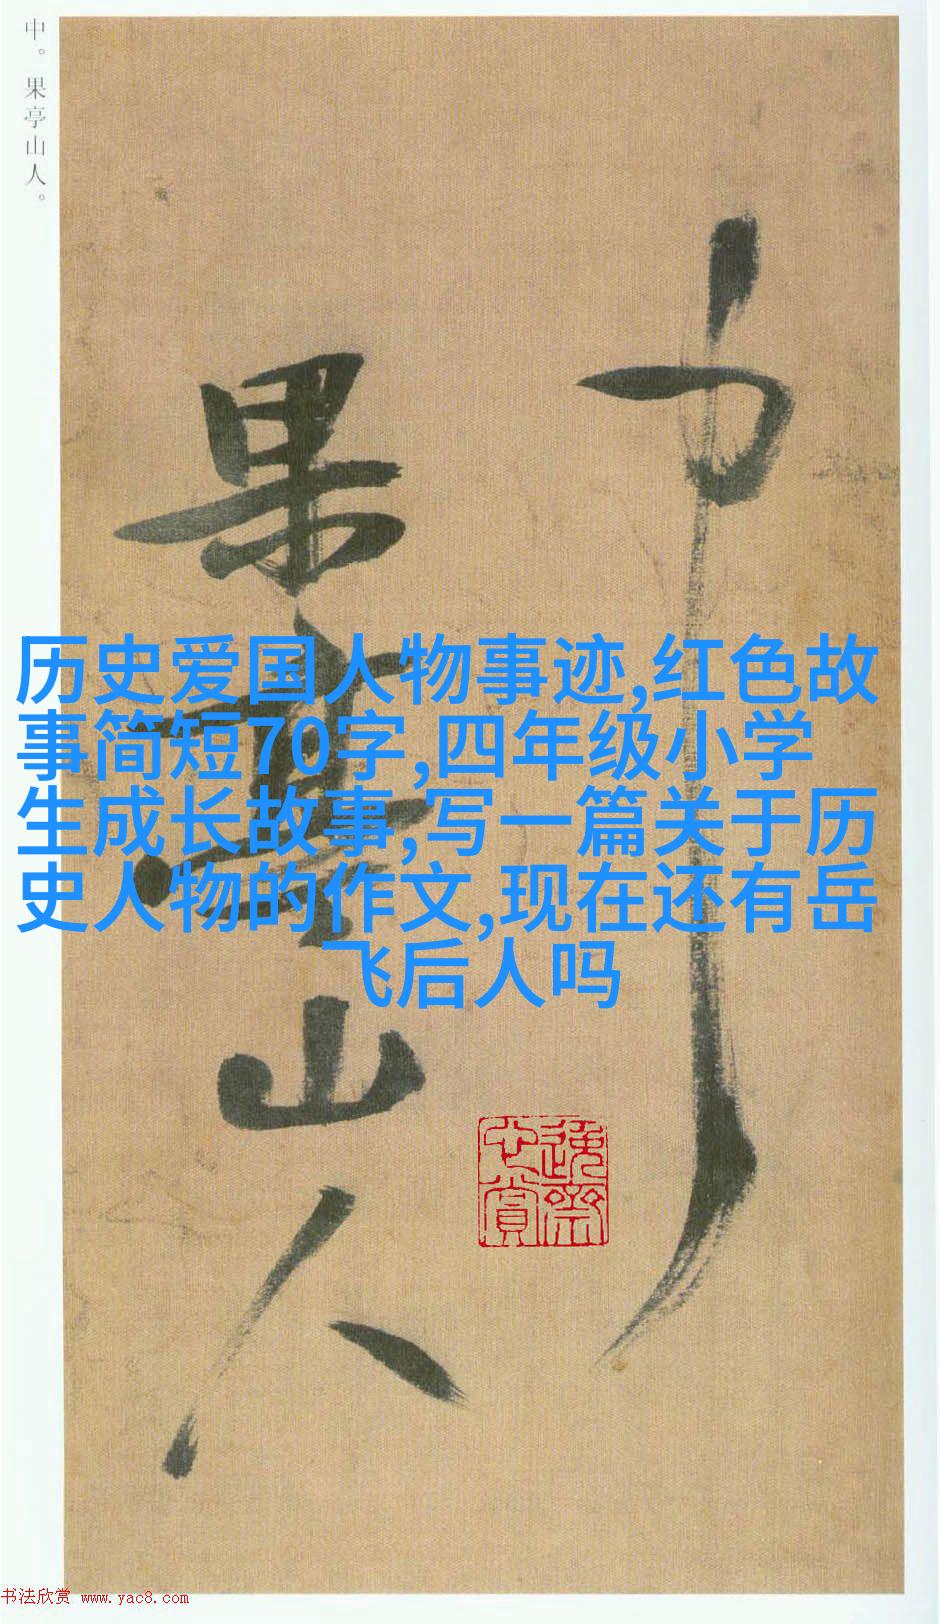 中。果亭山人。
中
果亭山人
历史爱国人物事迹,红色故
事简短70字,四年级小学
生成长故事,写一篇关于历
史人物的作文,现在还有岳
飞后人吗
逸齋
心賞
书法欣赏 www.yac8.com